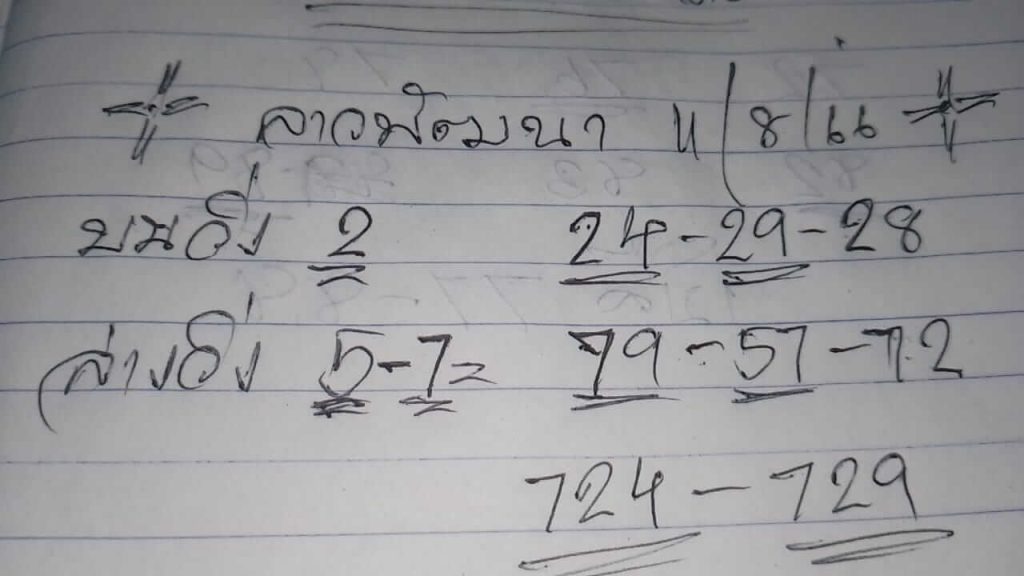 ลาวพัฒนา 11/8/66
บนวิ่ง 2 24-29-28
ล่างวิ่ง 5-7= 79-57-72
724-729